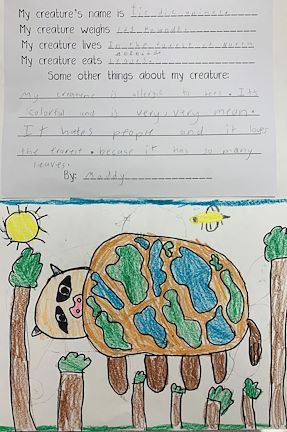 My creature's name is tie die animale
My creature weighs
My creature lives In the forest of North
America.
My creature eats leaves.
Some other things about my creature:
My creature is allergic to bees. Its
colorful and is very, very mean.
It hates people and it loves
the forest. becase it has so many
leaves.
By: Maddy